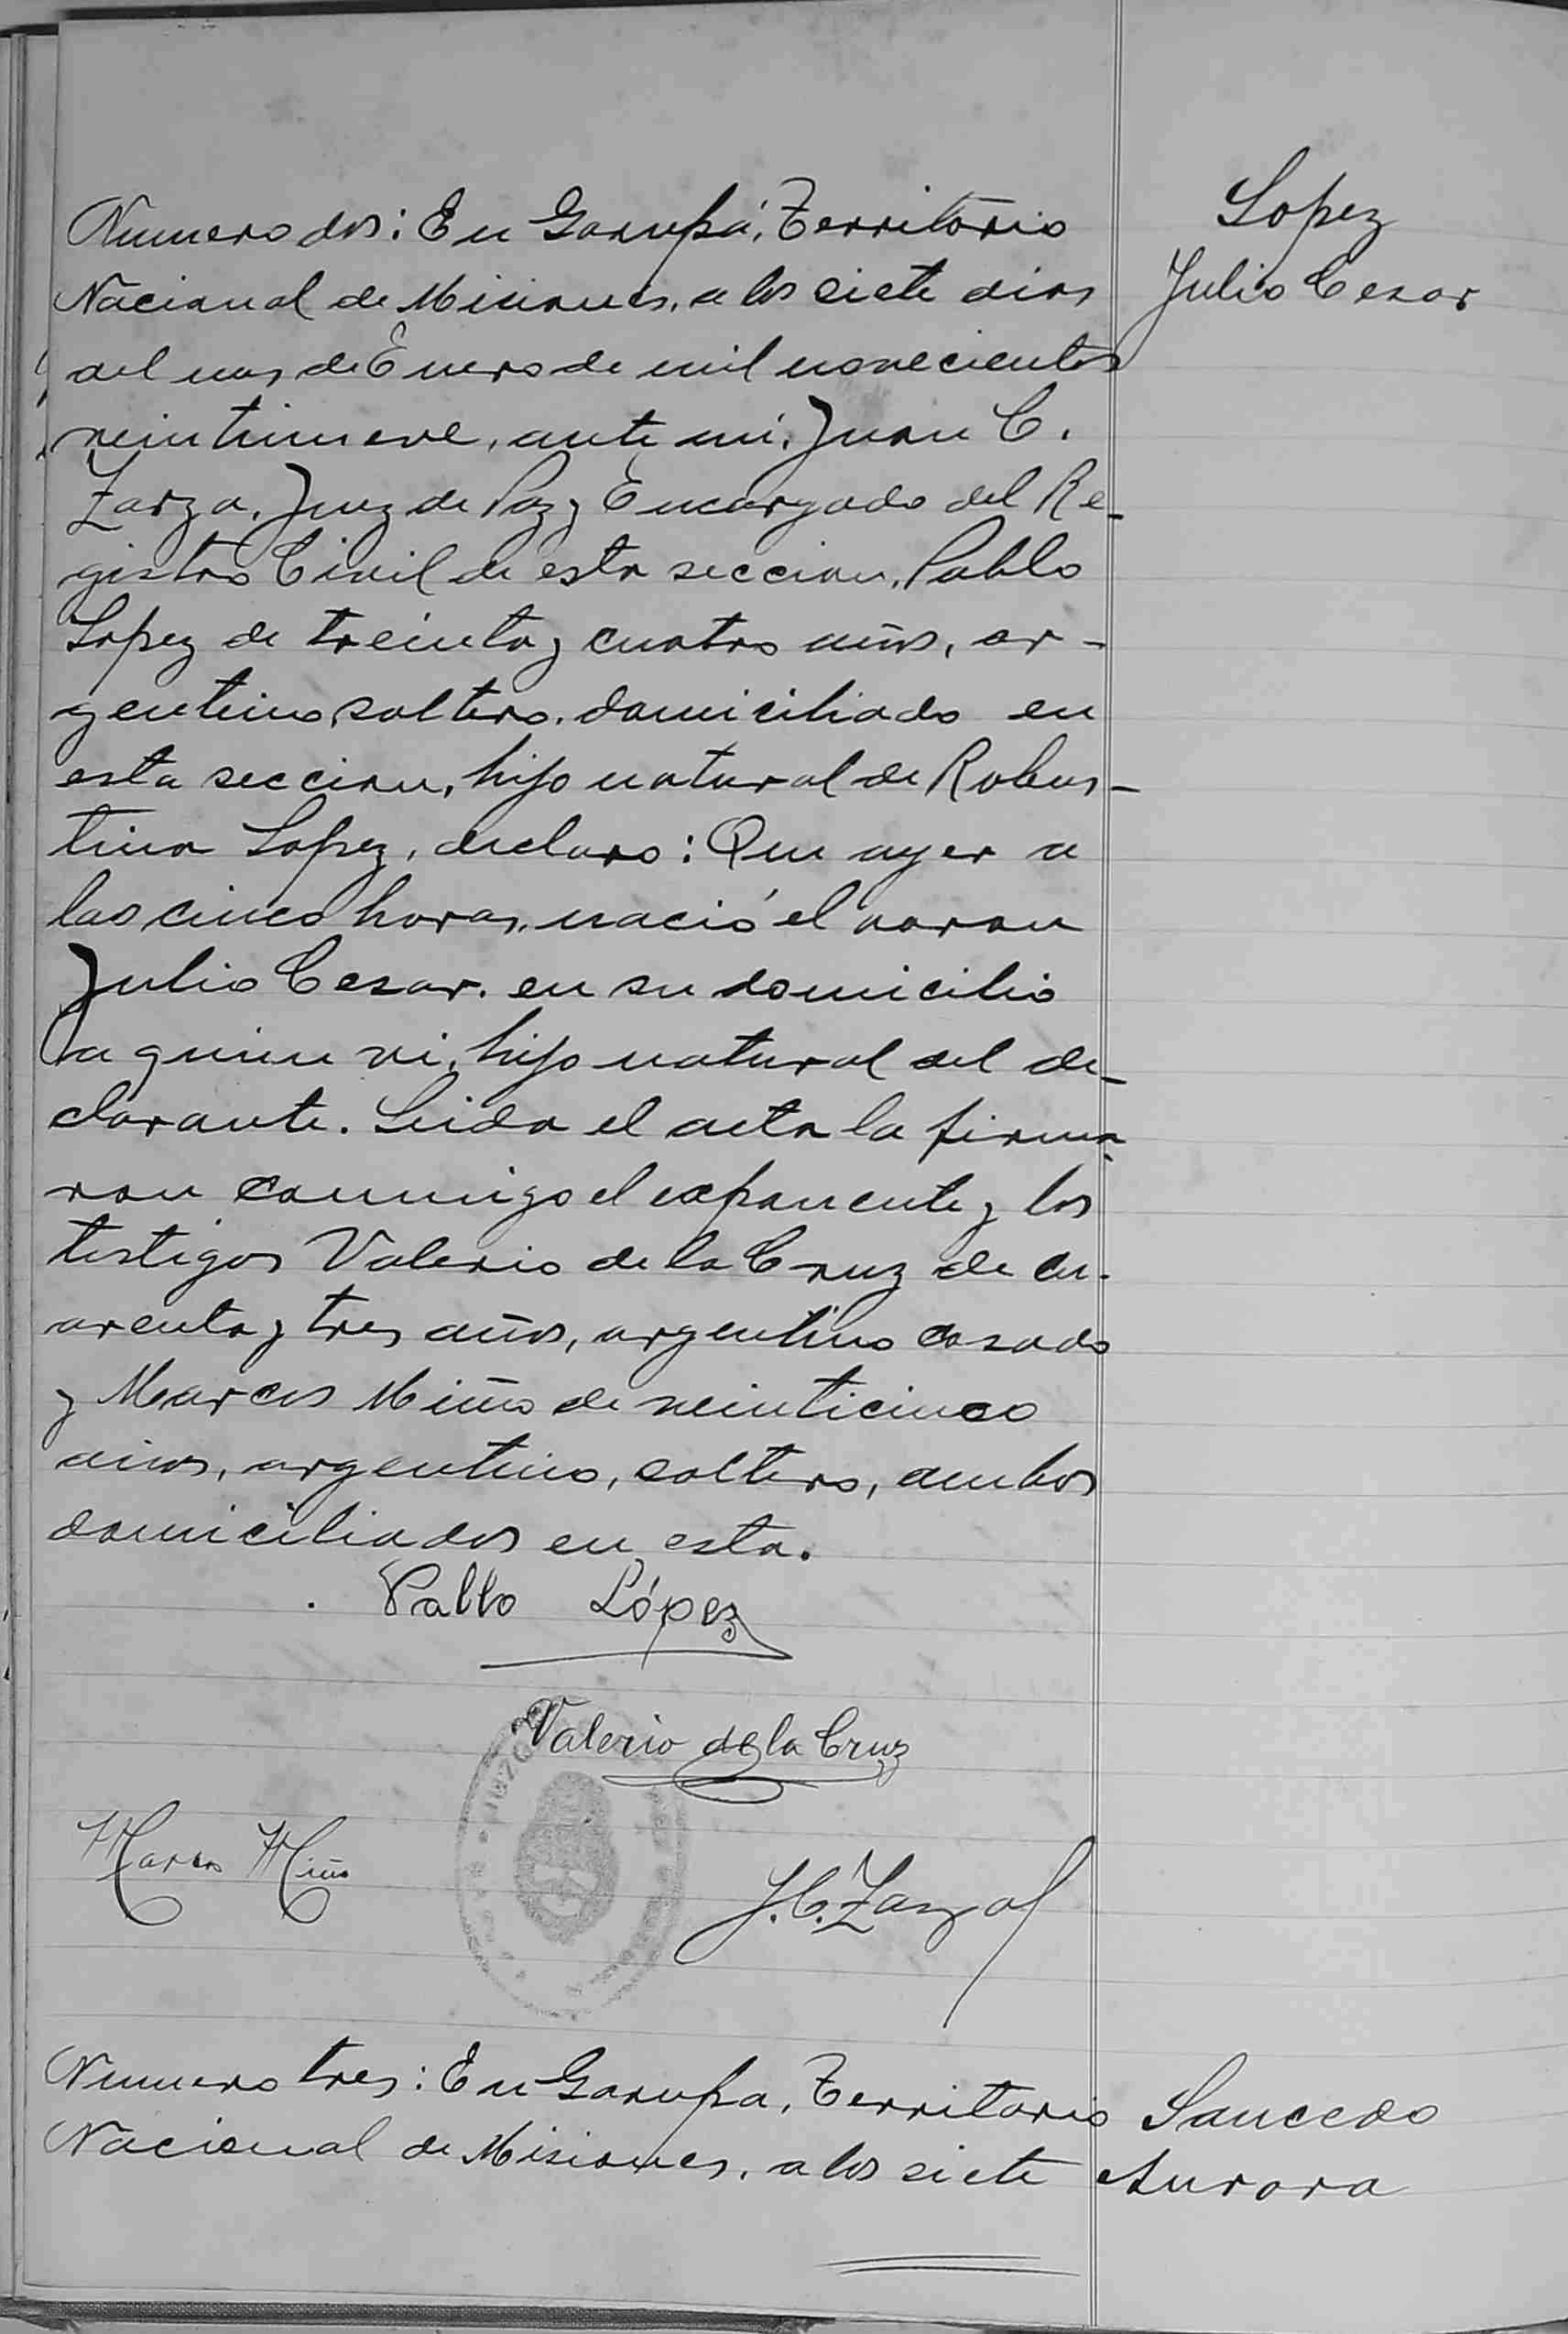 Lopez
Julio Cesar
Numero dos: En Garupá, Territorio
Nacional de Misiones, a los siete dias
del mes de Enero de mil novecientos
veintinueve, ante mí, Juan C.
Zarza, Juez de Paz y Encargado del Re-
gistro Civil de esta seccion, Pablo
Lopez de treinta y cuatro años, ar-
gentino, soltero, domiciliado en
esta seccion, hijo natural de Robus-
tina Lopez, declaro: Que ayer a
las cinco horas, nació el varon
Julio Cesar, en su domicilio
a quien vi, hijo natural del de-
clarante. Leida el acta la firma-
ron conmigo el exponente y los
testigos Valerio de la Cruz de cu-
arenta y tres años, argentino casado
y Marcos Miño de veinticinco
años, argentino, soltero, ambos
domiciliados en esta.
Pablo López
Valerio de la Cruz
JUZGADO
Marcos Miño
J.C. Zarza
Numero tres: En Garupa, Territorio
Nacional de Misiones, a los siete
Saucedo
Aurora